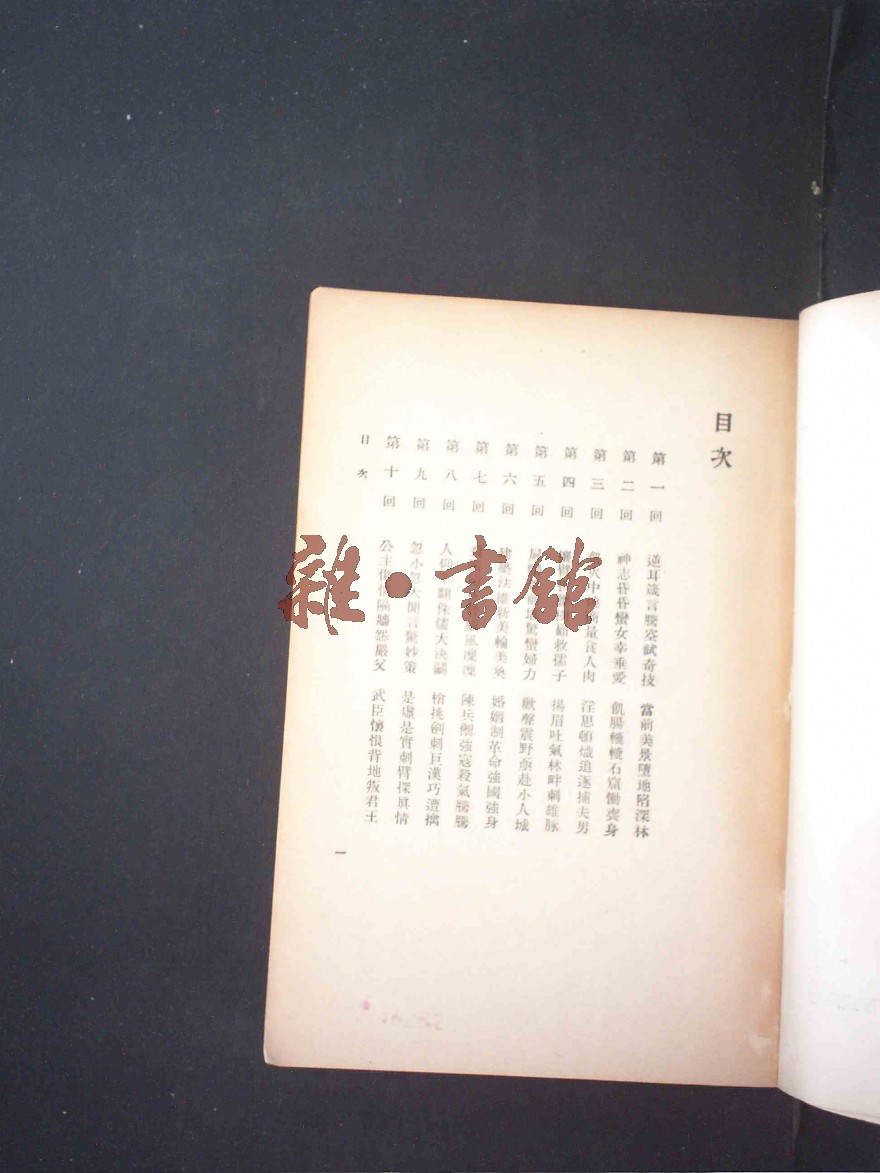 目次
第一回 逆耳箴言騰空試奇技 當前美景墮地陷深林
第二回 神志昏昏蠻女幸垂愛 飢腸轆轆石窟慟喪身
第三回 中 量食人肉 淫思頓熾追逐捕夫男
第四回 救儒子 揚眉吐氣林畔刺雄豚
第五回 驚蠻婦力 歡聲震野 赴小人城
第六回 建築法 美輪美奐 婚姻制革命強國強身
第七回 風凜凜 陳兵禦強寇殺氣騰騰
第八回 人仰 翻侏儒大決鬭 槍挑劍刺巨漢巧遭擒
第九回 忽小忽大聞言驚妙策 是虛是實刺臂探眞情
第十回 公主 情隔牆怨嚴父 武臣懷恨背地叛君王
目次
一
雜·書館